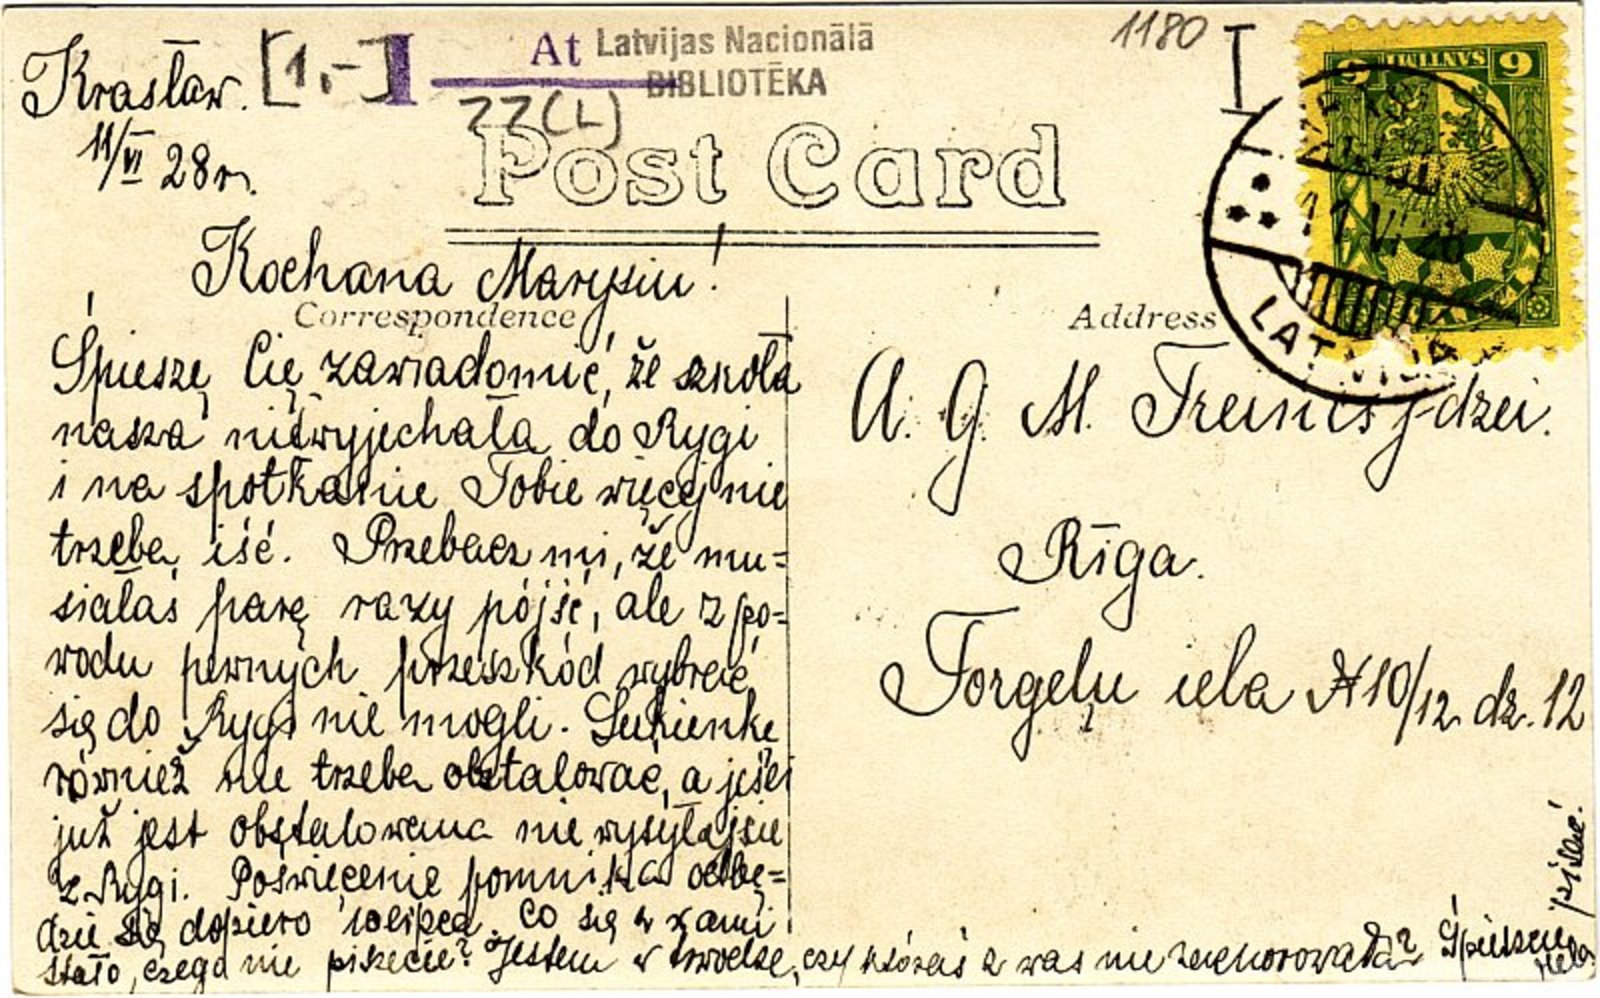 Krasław. [1,-] I At Latvijas Nacionālā 1180 I
BIBLIOTĒKA
ZZ(L)
11/VI 28 r.
Post Card
Kochana Marysiu!
Correspondence
Śpieszę Cię zawiadomić, że szkoła
nasza nie wyjechała do Rygi
i na spotkanie Tobie więcej nie
trzeba iść. Przebacz mi, że mu=
siałaś parę razy pójść, ale z po=
wodu pewnych przeszkód wybrać
się do Rygi nie mogli. Sukienke
również nie trzeba obstalować, a jeśli
już jest obstalowana nie wysyłajcie
z Rygi. Poświęcenie pomnika odbę=
dzie się dopiero w lipca. Co się z wami
stało, czego nie piszecie? Jestem w trwodze, czy któraś z was nie zachorowała? Śpieszcie
pisać.
Hela
Address
A. G. M. Freincs j-dzei.
Rīga.
Torgeļu iela № 10/12 dz. 12
6 SANTIMI 6
11 VI 28
LATVIJA